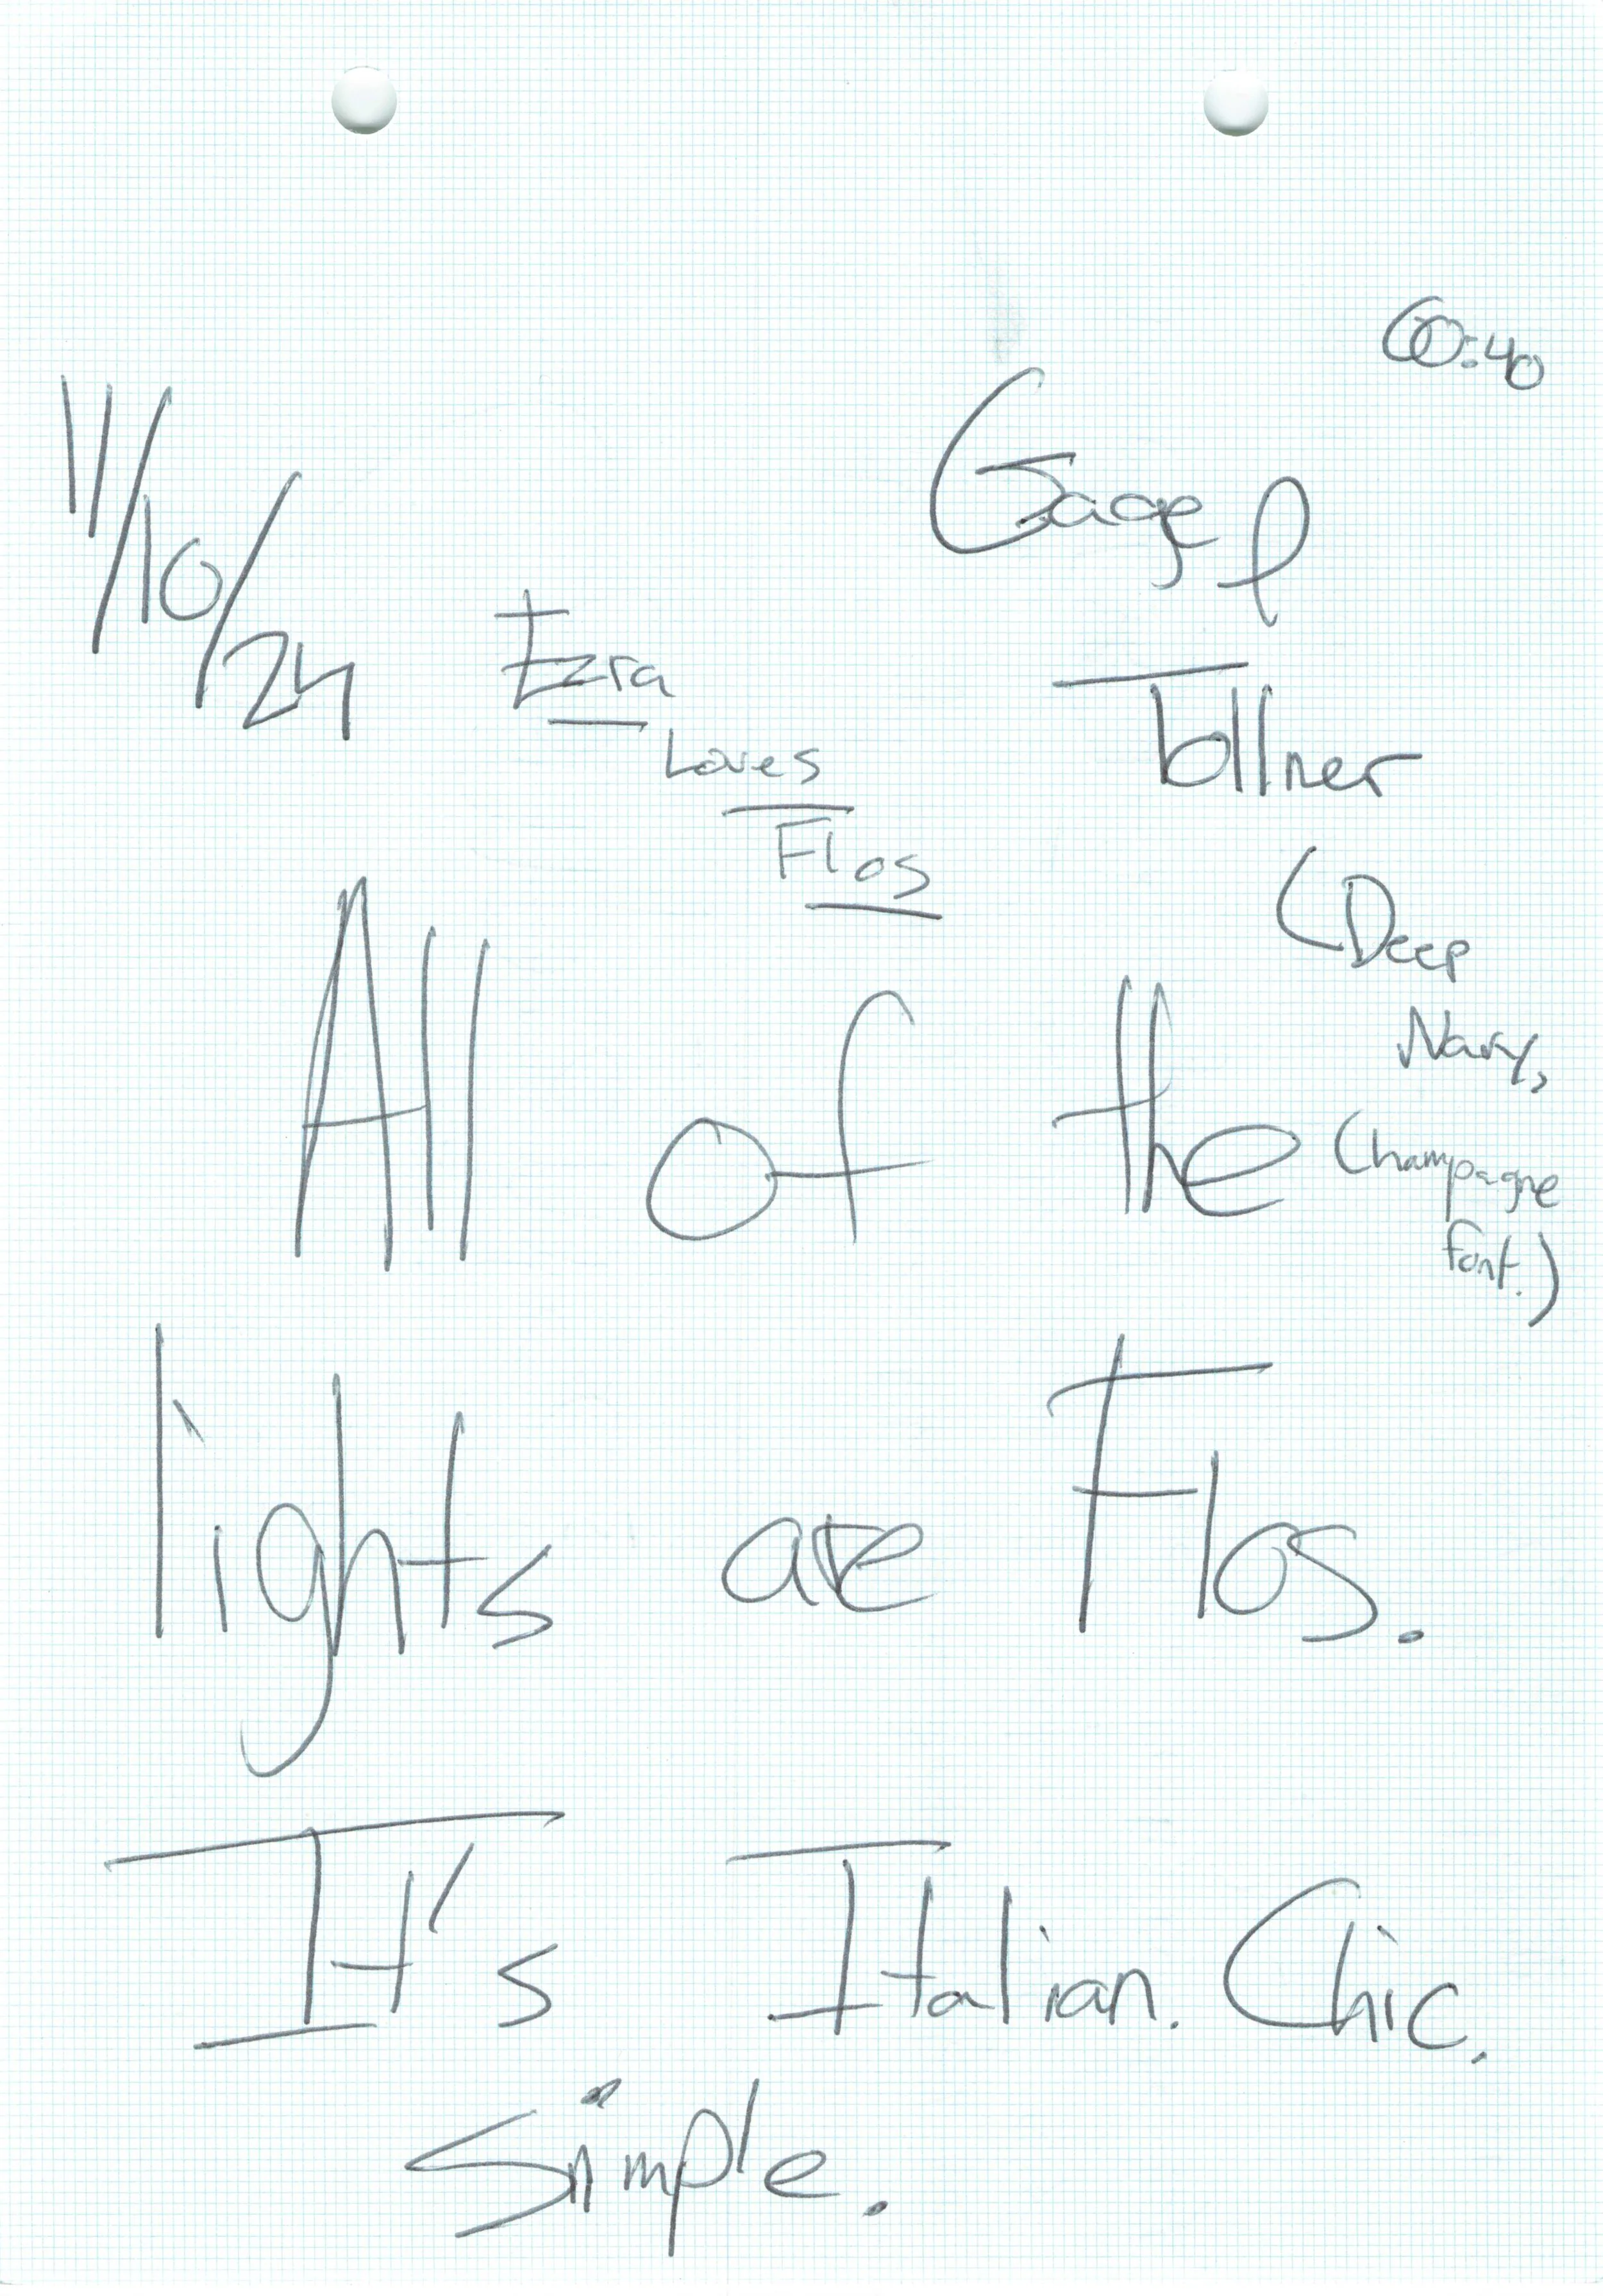 60:40
11/10/24
Gage &
Tollner
Ezra
Loves
Flos
(Deep
Navy,
Champagne
font.)
All of the
lights are Flos.
It's Italian. Chic.
Simple.